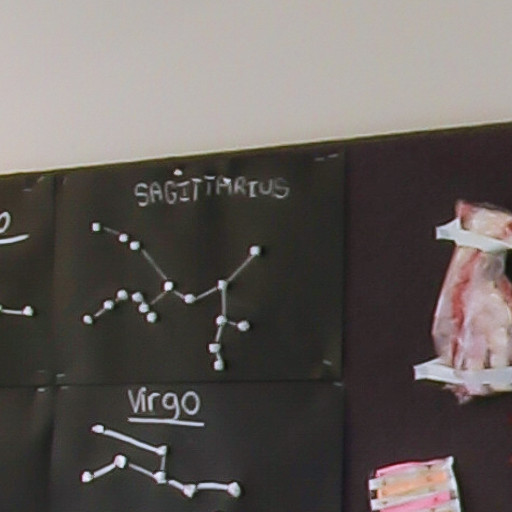 SAGITTARIUS
Virgo